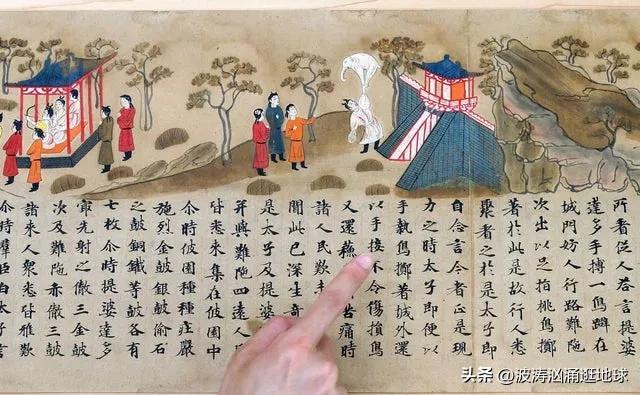 所看從人荅言提婆
達多手搏一象躃在
城門妨人行路難陁
次出以足指挑象擲
著於此是故行人悉
聚看之於是太子即
自念言今者正是現
力之時太子即便以
手執象擲著城外還
以手接不令傷損象
又還蘇苦痛時
諸人民歎未
聞此已深生奇
是太子及提婆
并與難陁四遠人
皆悉來集在彼園中
尒時彼園種種莊嚴
施列金鼓銀鼓鍮石
之鼓銅鐵等鼓各有
七枚尒時提婆達多
㝡先射之徹三金鼓
次及難陁亦徹三鼓
諸來人衆悉皆雅歎
尒時羣臣白太子言
头条 @波涛汹涌逛地球